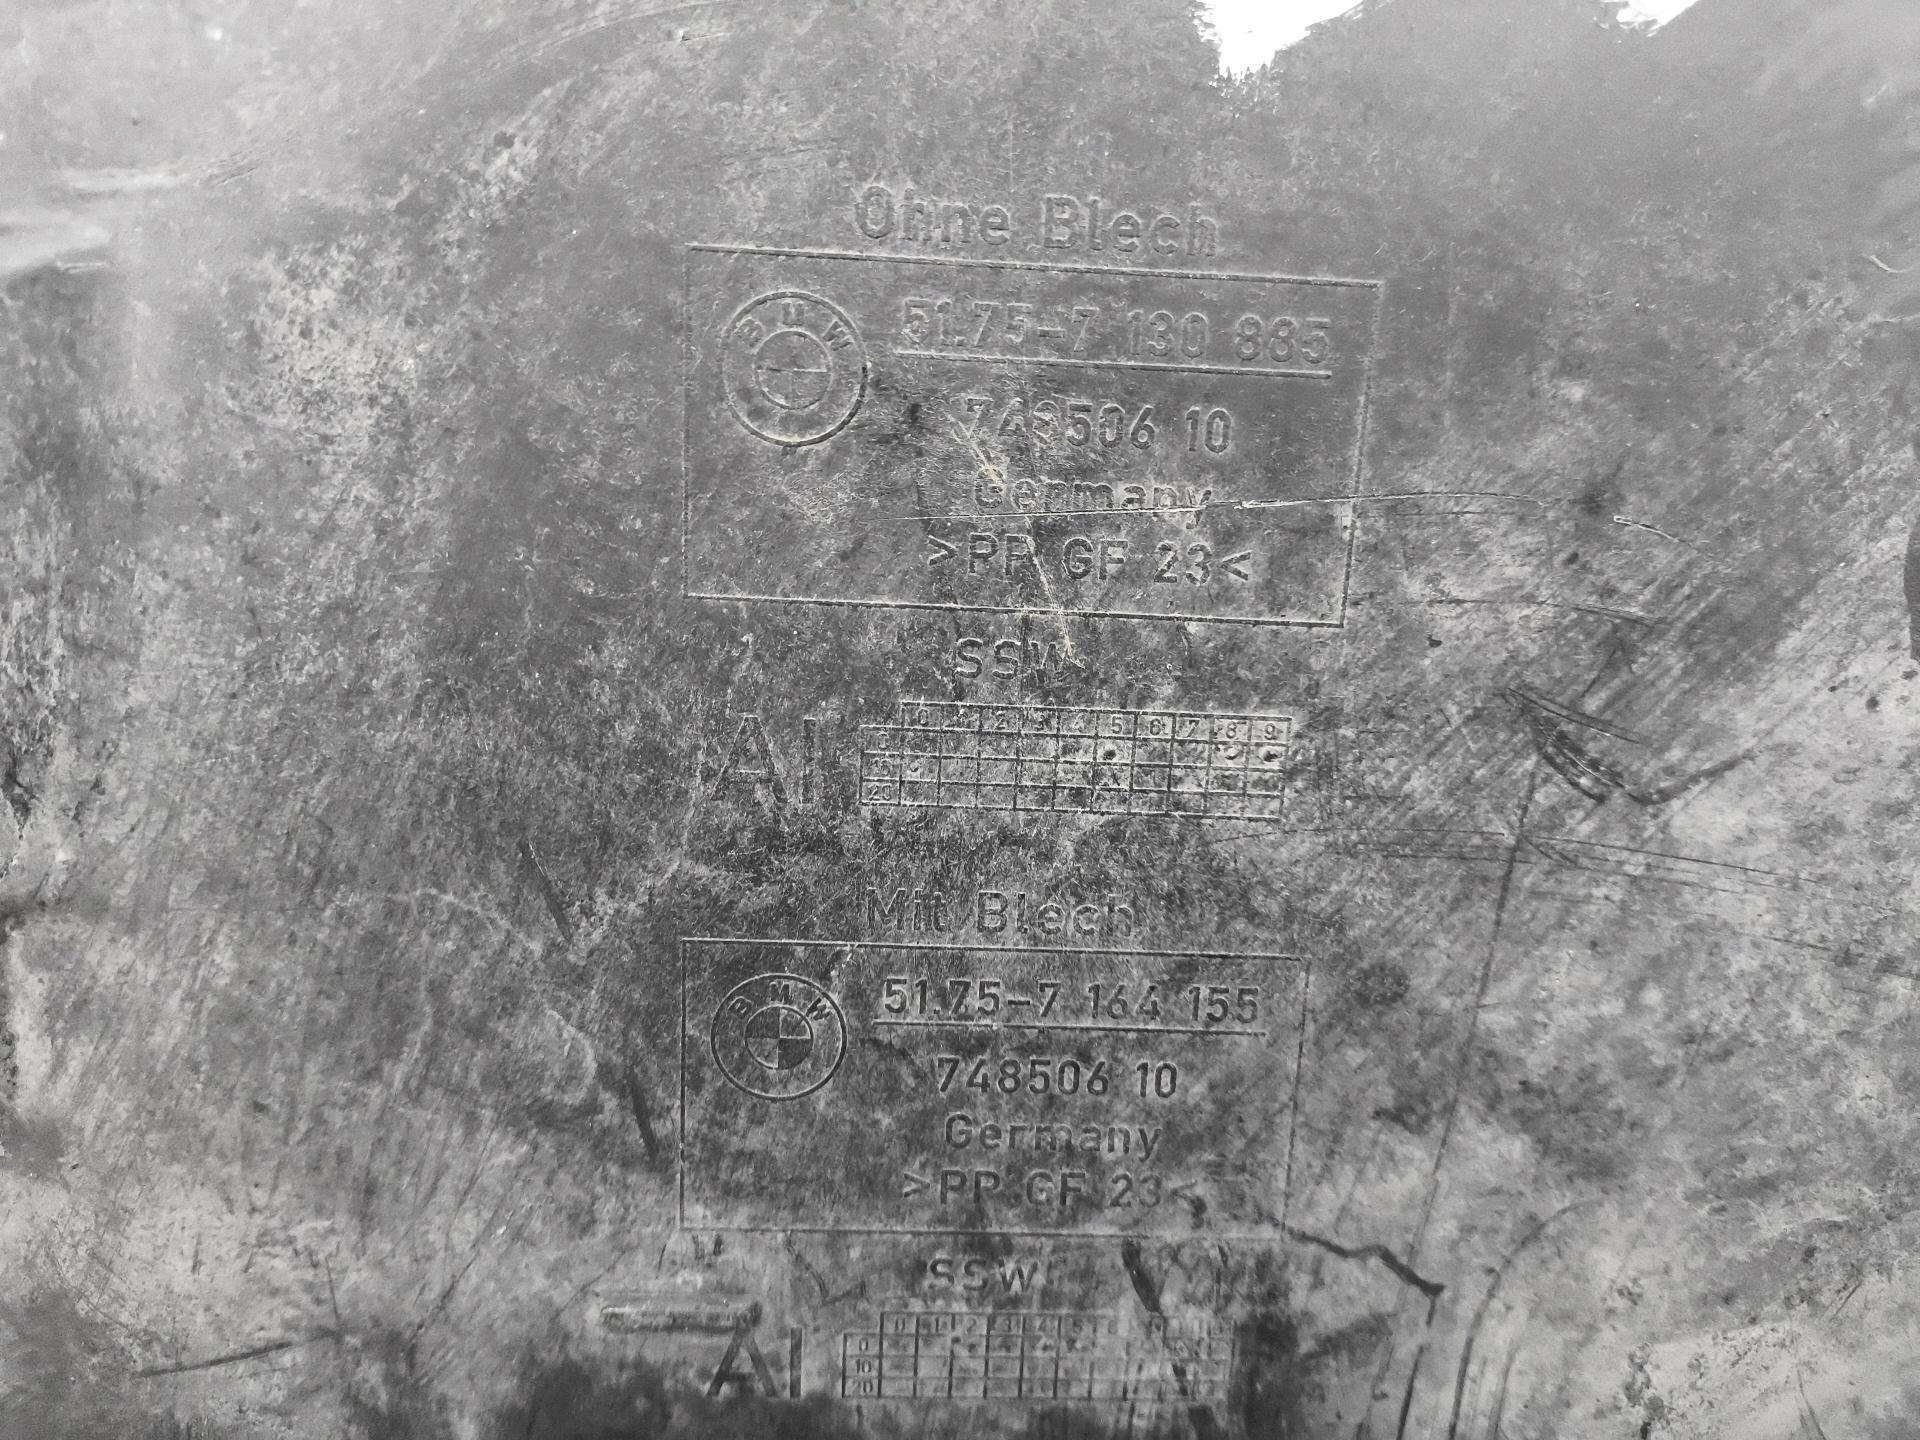 Ohne Blech
BMW
51.75-7 130 885
748506 10
Germany
>PP GF 23<
SSW
0 1 2 3 4 5 6 7 8 9
AI
0
10
20
Mit Blech
BMW
51.75-7 164 155
748506 10
Germany
>PP GF 23<
SSW
0 1 2 3 4 5 6
AI
0
10
20